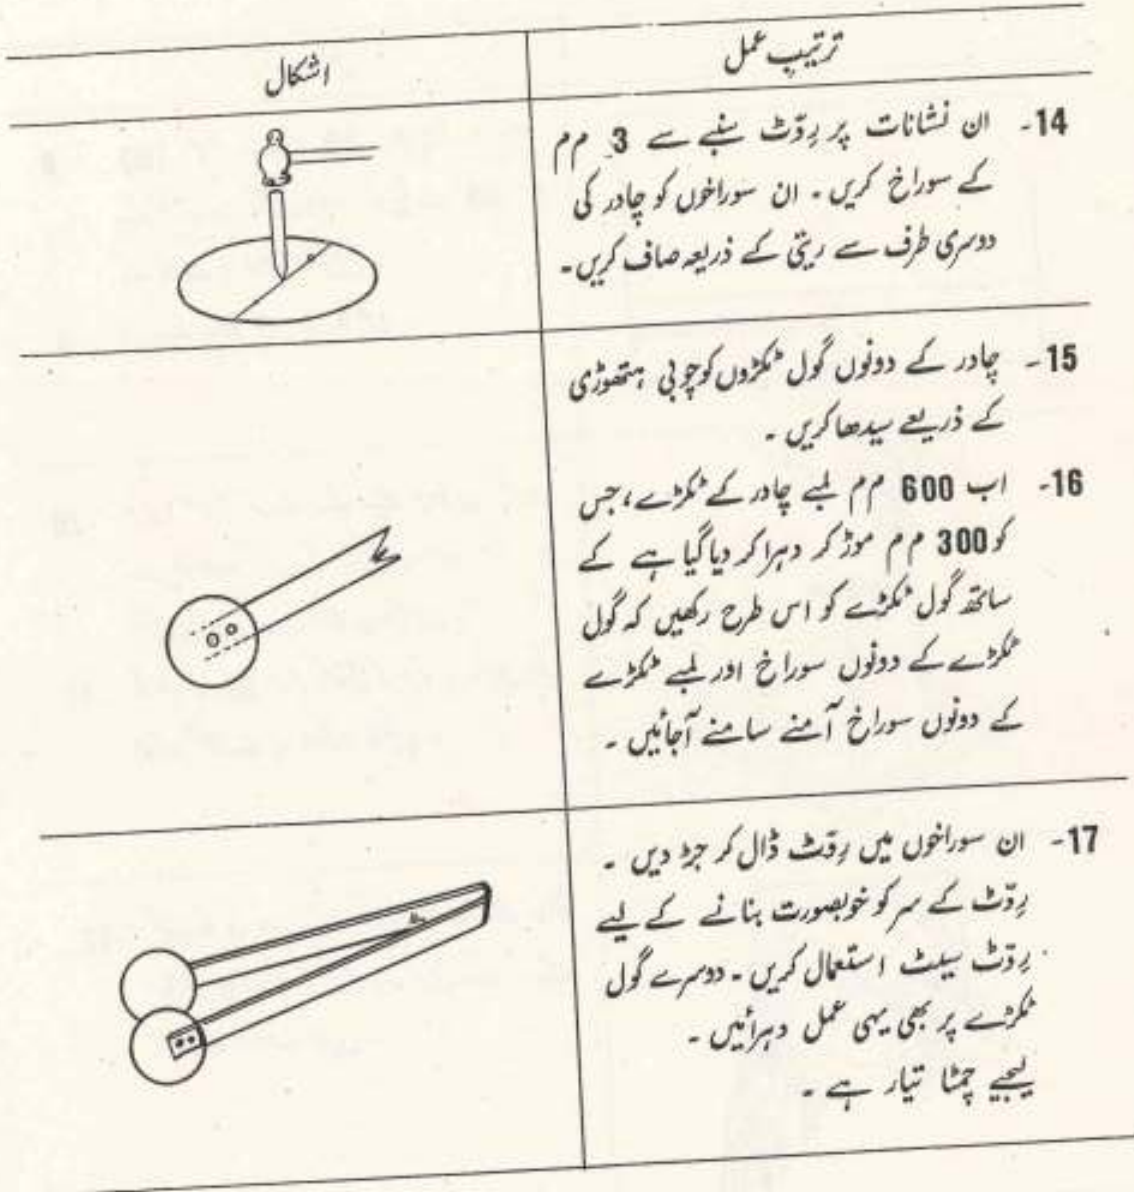 ترتیبِ عمل
اشکال
14- ان نشانات پر رِوّٹ سنبے سے 3 م م
کے سوراخ کریں ۔ ان سوراخوں کو چادر کی
دوسری طرف سے ریتی کے ذریعہ صاف کریں۔
15- چادر کے دونوں گول ٹکڑوں کو چوبی ہتھوڑی
کے ذریعے سیدھا کریں ۔
16- اب 600 م م لمبے چادر کے ٹکڑے، جس
کو 300 م م موڑ کر دہرا کر دیا گیا ہے کے
ساتھ گول ٹکڑے کو اس طرح رکھیں کہ گول
ٹکڑے کے دونوں سوراخ اور لمبے ٹکڑے
کے دونوں سوراخ آمنے سامنے آجائیں ۔
17- ان سوراخوں میں رِوّٹ ڈال کر جڑ دیں ۔
رِوّٹ کے سر کو خوبصورت بنانے کے لیے
رِوّٹ سیٹ استعمال کریں ۔ دوسرے گول
ٹکڑے پر بھی یہی عمل دہرائیں ۔
لیجیے چمٹا تیار ہے ۔